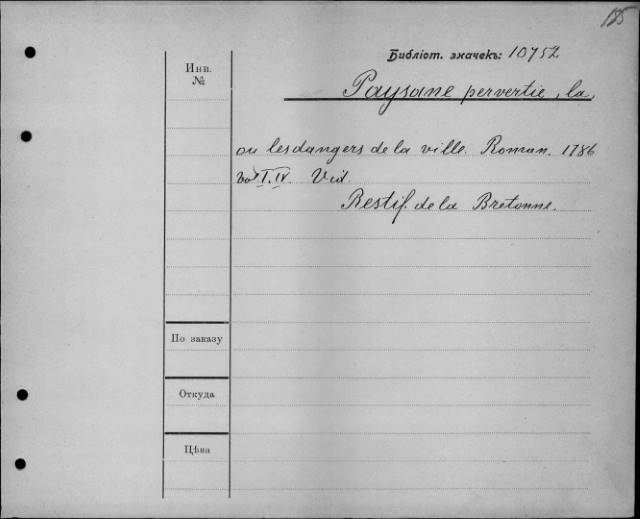 185
Библіот. значекъ: 10752
Инв.
№
Paysane pervertie, la,
ou les dangers de la ville. Roman. 1786
vol I. IV. Vid.
Restif. de la Bretonne.
По заказу
Откуда
Цѣна